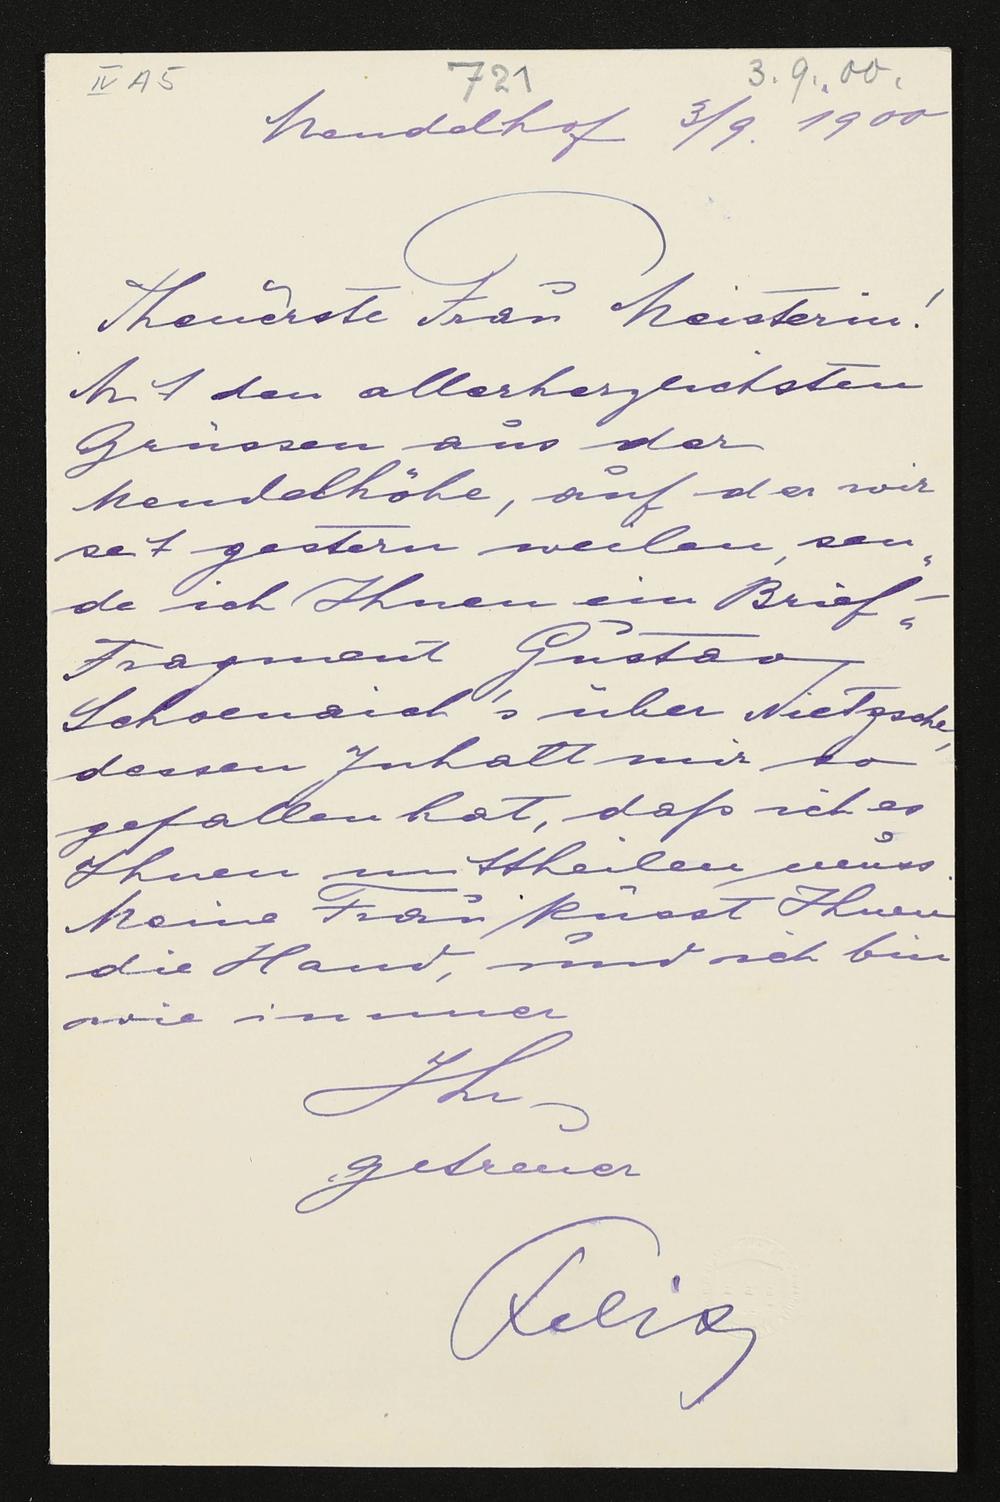 IV A 5 721 3.9.00.
Mendelhof 3/9. 1900
Theuerste Frau Meisterin!
Mit den allerherzlichsten
Grüssen aus der
Mendelhöhe, auf der wir
seit gestern weilen, sen„
de ich Ihnen ein Brief-„
Fragment Gustav
Schoenaich's über Nietzsche,
dessen Inhalt mir so
gefallen hat, daß ich es
Ihnen mittheilen muss.
Meine Frau küsst Ihnen
die Hand, und ich bin
wie immer
Ihr
getreuer
Felix